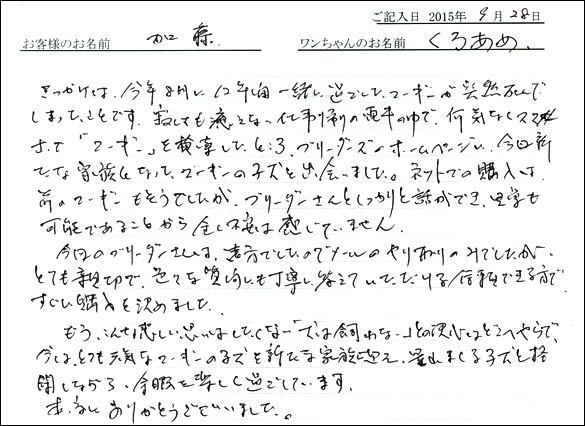 ご記入日 2015年 9月 28日
お客様のお名前 加藤 ワンちゃんのお名前 くろあめ
きっかけは、今年8月に、12年間一緒に過ごしてしたコーギーが突然死んで
しまったことです。寂しくも癒えない仕事帰りの電車の中で、何気なくスマホ
で「コーギー」を検索したところ、ブリーダーズのホームページに、今回新
たな家族になったコーギーの子犬と出会いました。ネットでの購入は、
前のコーギーもそうでしたが、ブリーダーさんとしっかりと話ができ、見学も
可能であることから全く不安は感じていません。
今回のブリーダーさんは、遠方でしたのでメールのやり取りのみでしたが、
とても親切で、色々な質問にも丁寧に答えていただける信頼できる方で
すぐに購入を決めました。
もう、こんな悲しい思いはしたくない「犬は飼わない」との決心はどこへやらで、
今は、とても元気なコーギーの子犬を新たな家族に迎え、子犬と格
闘しながら、余暇を楽しく過ごしています。
本当にありがとうございました。